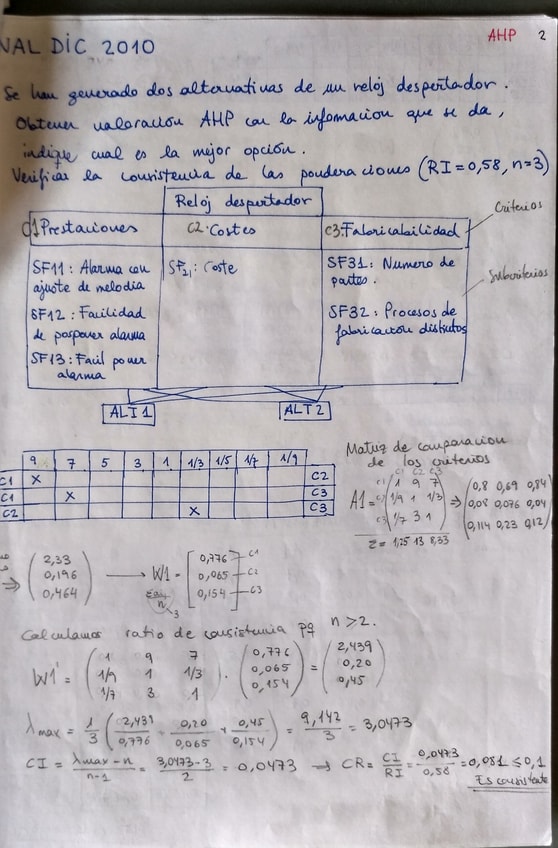 AHP 2
NAL DIC 2010
Se han generado dos alternativas de un reloj despertador.
Obtener valoración AHP con la información que se da,
indique cual es la mejor opción.
Verificar la consistencia de las ponderaciones (RI=0,58, n=3)
Reloj despertador
C1 Prestaciones C2. Costes C3. Fabricabilidad
Criterios
SF11: Alarma con
ajuste de melodia
SF12: Facilidad
de posponer alarma
SF13: Facil poner
alarma
SF21: Coste
SF31: Numero de
partes.
SF32: Procesos de
fabricación distintos
Subcriterios
ALT 1 ALT 2
9 7 5 3 1 1/3 1/5 1/7 1/9
C1 X C2
C1 X C3
C2 X C3
Matriz de comparación
de los criterios
C1 C2 C3
C1 1 9 7 0,8 0,69 0,84
A1= C2 1/9 1 1/3 ⇒ 0,08 0,076 0,04
C3 1/7 3 1 0,114 0,23 0,12
Σ= 1,25 13 8,33
⇒ 2,33 0,776 C1
0,196 → W1= 0,065 C2
0,464 n 3 0,154 C3
Calculamos ratio de consistencia pq n>2.
1 9 7 0,776 2,439
W1'= 1/9 1 1/3 · 0,065 = 0,20
1/7 3 1 0,154 0,45
λmax = 1/3 (2,439/0,776 + 0,20/0,065 + 0,45/0,154) = 9,142/3 = 3,0473
CI = λmax-n/n-1 = 3,0473-3/2 = 0,0473 → CR= CI/RI = 0,0473/0,58 = 0,081 ≤ 0,1
Es consistente